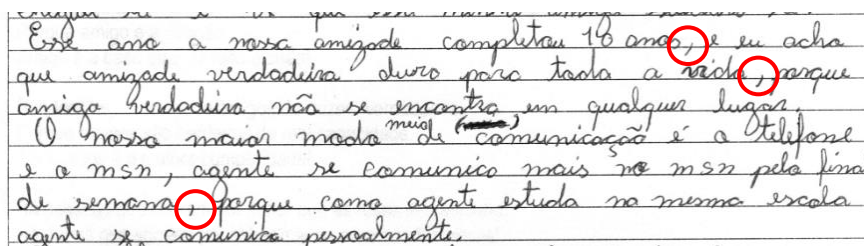 Esse ano a nossa amizade completou 18 anos, e eu acho
que amizade verdadeira duro para toda a vida, porque
amiga verdadeira não se encontra em qualquer lugar.
O nosso maior modo meio de comunicação é o telefone
e o msn, agente se comunico mais no msn pelo fina
de semana, porque como agente estuda na mesma escola
agente se comunica pessoalmente.